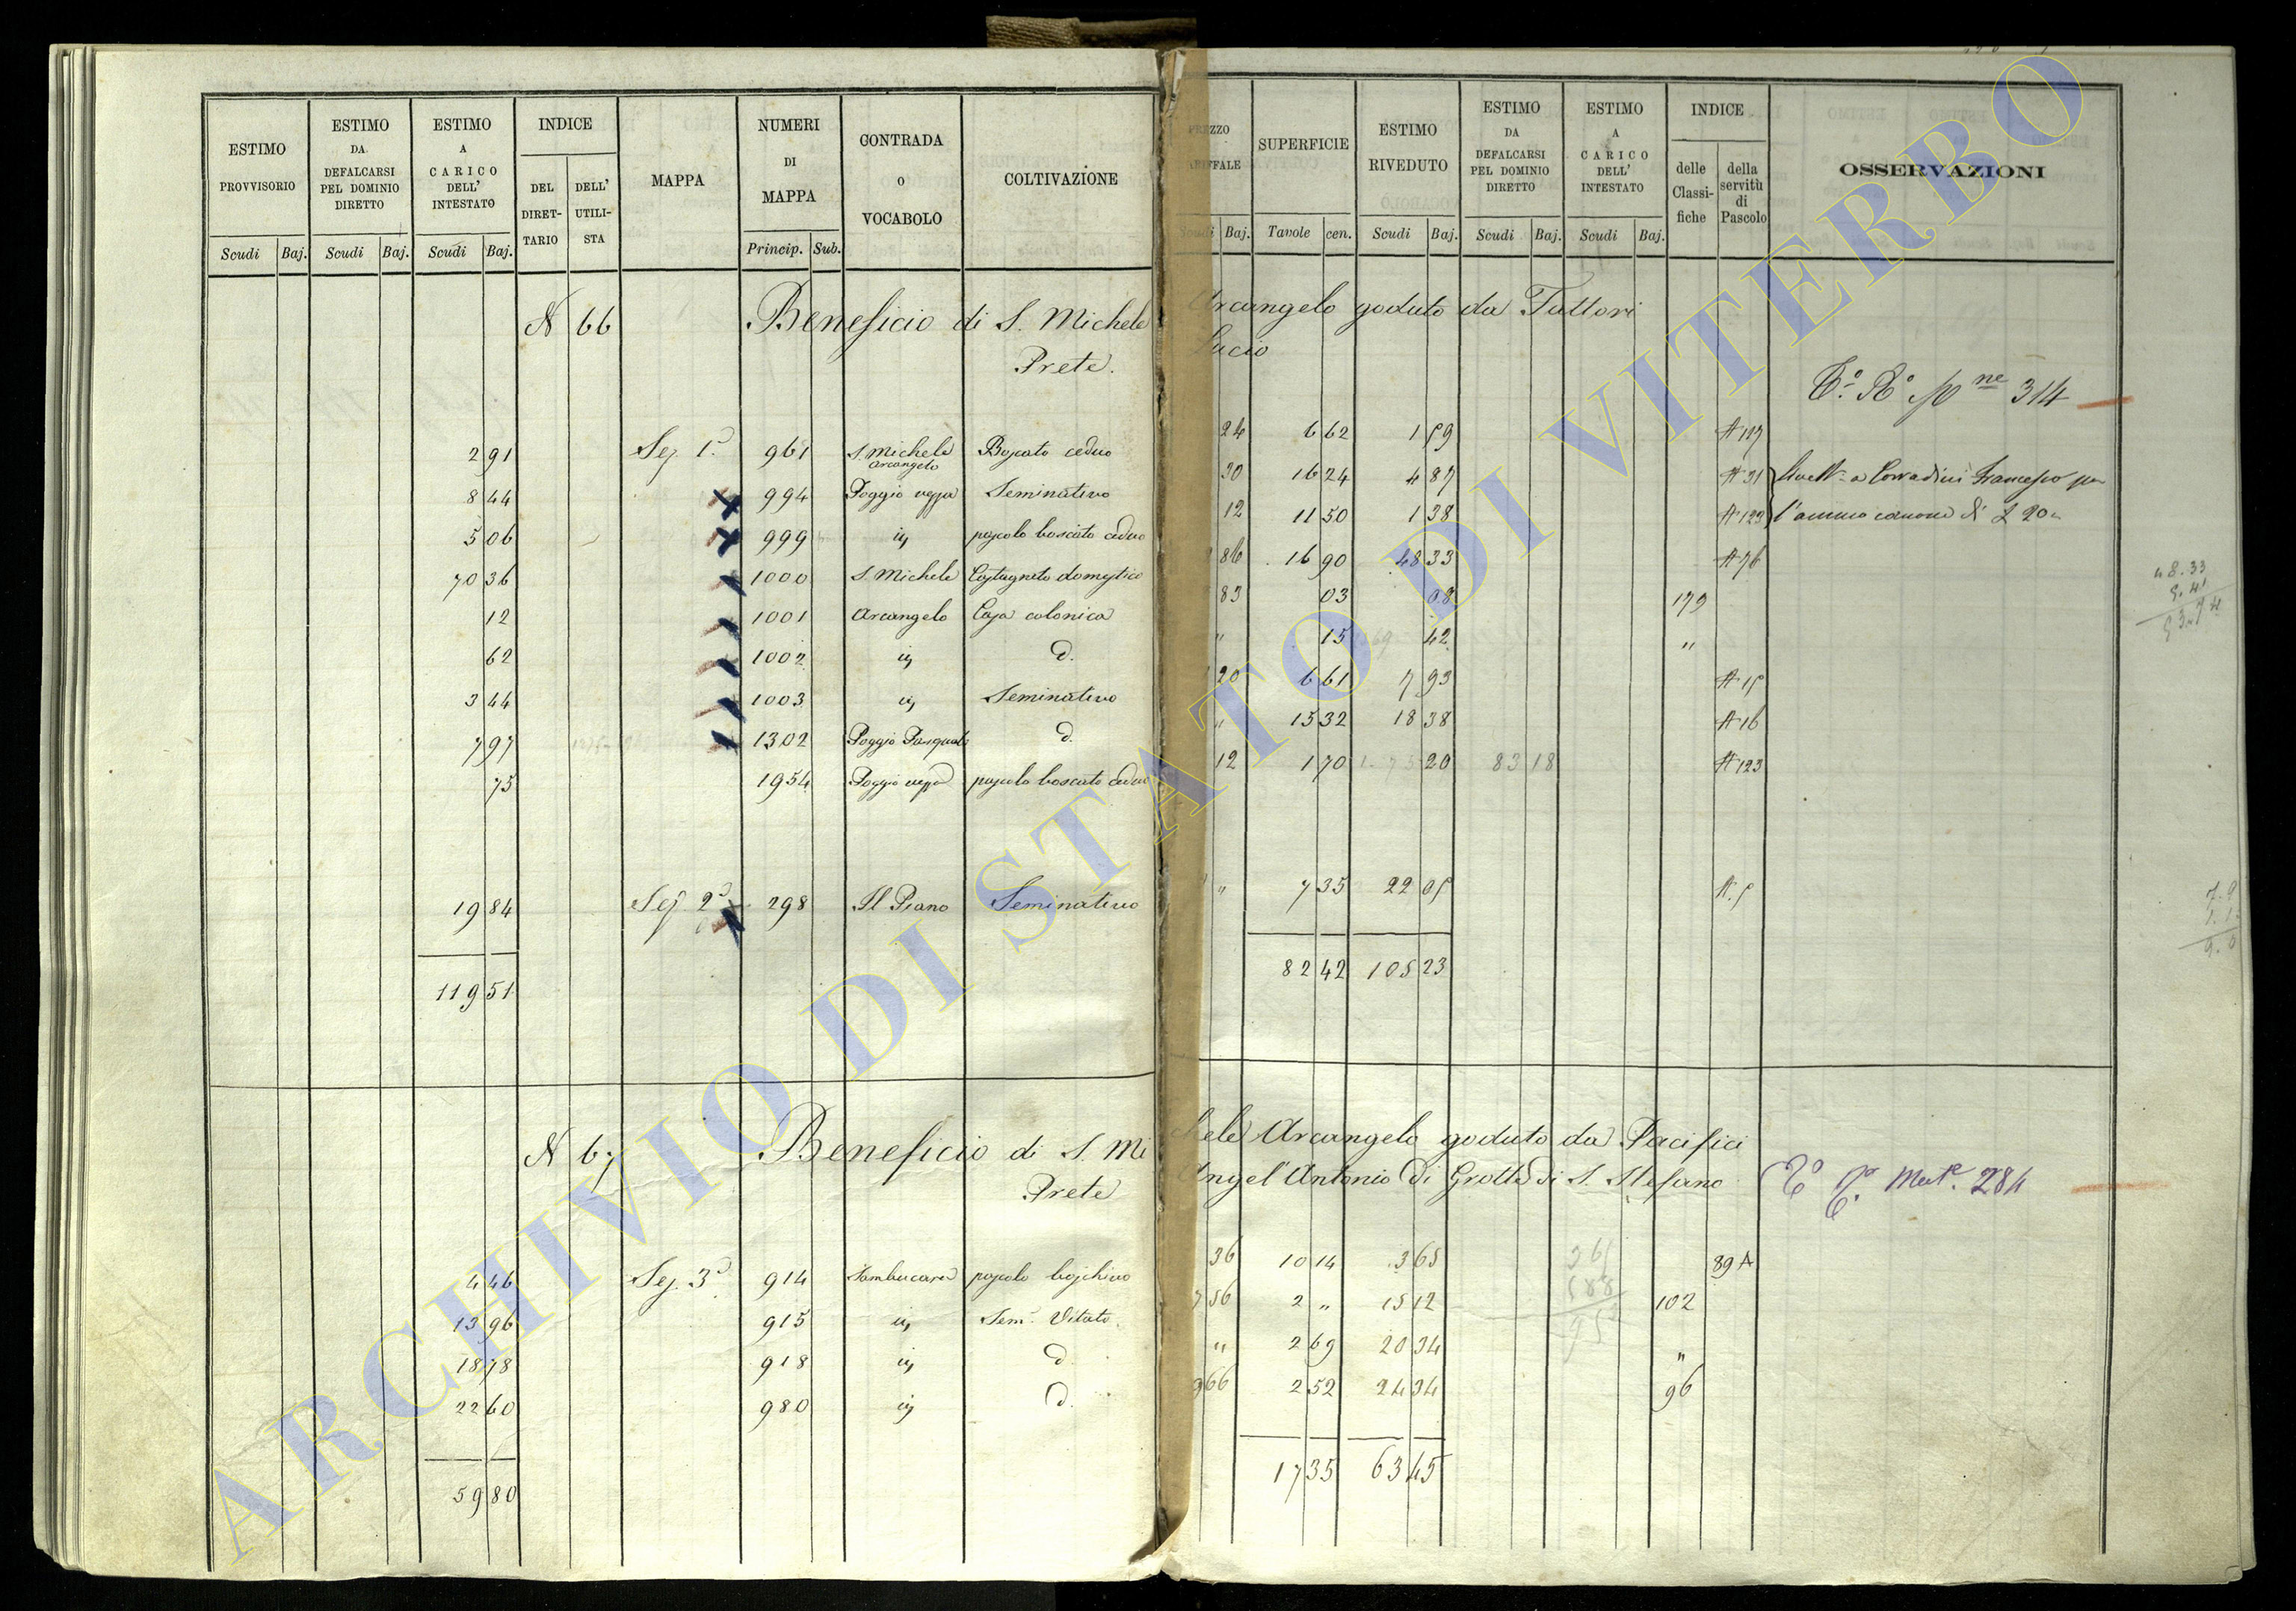 ESTIMO PROVVISORIO Scudi Baj.
ESTIMO DA DEFALCARSI PEL DOMINIO DIRETTO Scudi Baj.
ESTIMO A CARICO DELL' INTESTATO Scudi Baj.
INDICE DEL DIRET-TARIO DELL' UTILI-STA
MAPPA
NUMERI DI MAPPA Princip. Sub.
CONTRADA O VOCABOLO
COLTIVAZIONE
Baj.
SUPERFICIE Tavole cen.
ESTIMO RIVEDUTO Scudi Baj.
ESTIMO DA DEFALCARSI PEL DOMINIO DIRETTO Scudi Baj.
ESTIMO A CARICO DELL' INTESTATO Scudi Baj.
INDICE delle Classi-fiche della servitù di Pascolo
OSSERVAZIONI
N 66 Beneficio di S. Michele Arcangelo goduto da Fattori
Prete. Lucio
314
2 91 Sez. 1ª 961 S. Michele Arcangelo Boscato ceduo 24 6 62 1 59 A 127
8 44 994 Poggio Seminativo 30 16 24 4 87 A 31 a Corradini Francesco per
5 06 999 id pascolo boscato ceduo 12 11 50 1 38 A 123 l'annuo canone di £ 20
70 36 1000 S. Michele Castagneto domestico 86 16 90 48 33 A 76
12 1001 Arcangelo Casa colonica 83 03 08 179
62 1002 id d. " 15 42 "
3 44 1003 id Seminativo 20 6 61 7 93 A 15
7 97 1302 Poggio Pasquale d. " 15 32 18 38 A 16
75 1954 Poggio pascolo boscato ceduo 12 1 70 20 83 18 A 123
19 84 Sez. 2ª 298 Il Piano Seminativo " 7 35 22 05 A. 5
119 51 82 42 105 23
48.33
5.41
53.74
N 67 Beneficio di S. Michele Arcangelo goduto da Pacifici
Prete Angel'Antonio di Grotte di S. Stefano Mat. 284
4 46 Sez. 3ª 914 Sambucara pascolo boschivo 36 10 14 3 65 89 A
13 96 915 id Sem. Vitato 756 2 " 15 12 102
18 78 918 id d. " 2 69 20 34 "
22 60 980 id d. 966 2 52 24 34 96
59 80 17 35 63 45
ARCHIVIO DI STATO DI VITERBO